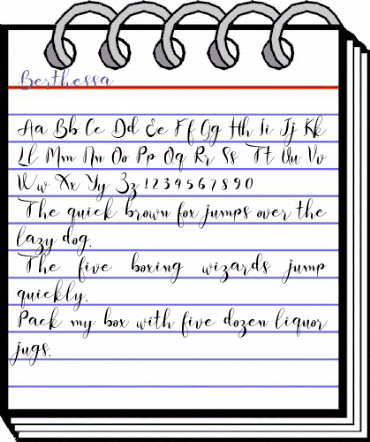 Berthessa
Aa Bb Cc Dd Ee Ff Gg Hh Ii Jj Kk
Ll Mm Nn Oo Pp Qq Rr Ss Tt Uu Vv
Ww Xx Yy Zz 1234567890
The quick brown fox jumps over the
lazy dog.
The five boxing wizards jump
quickly.
Pack my box with five dozen liquor
jugs.